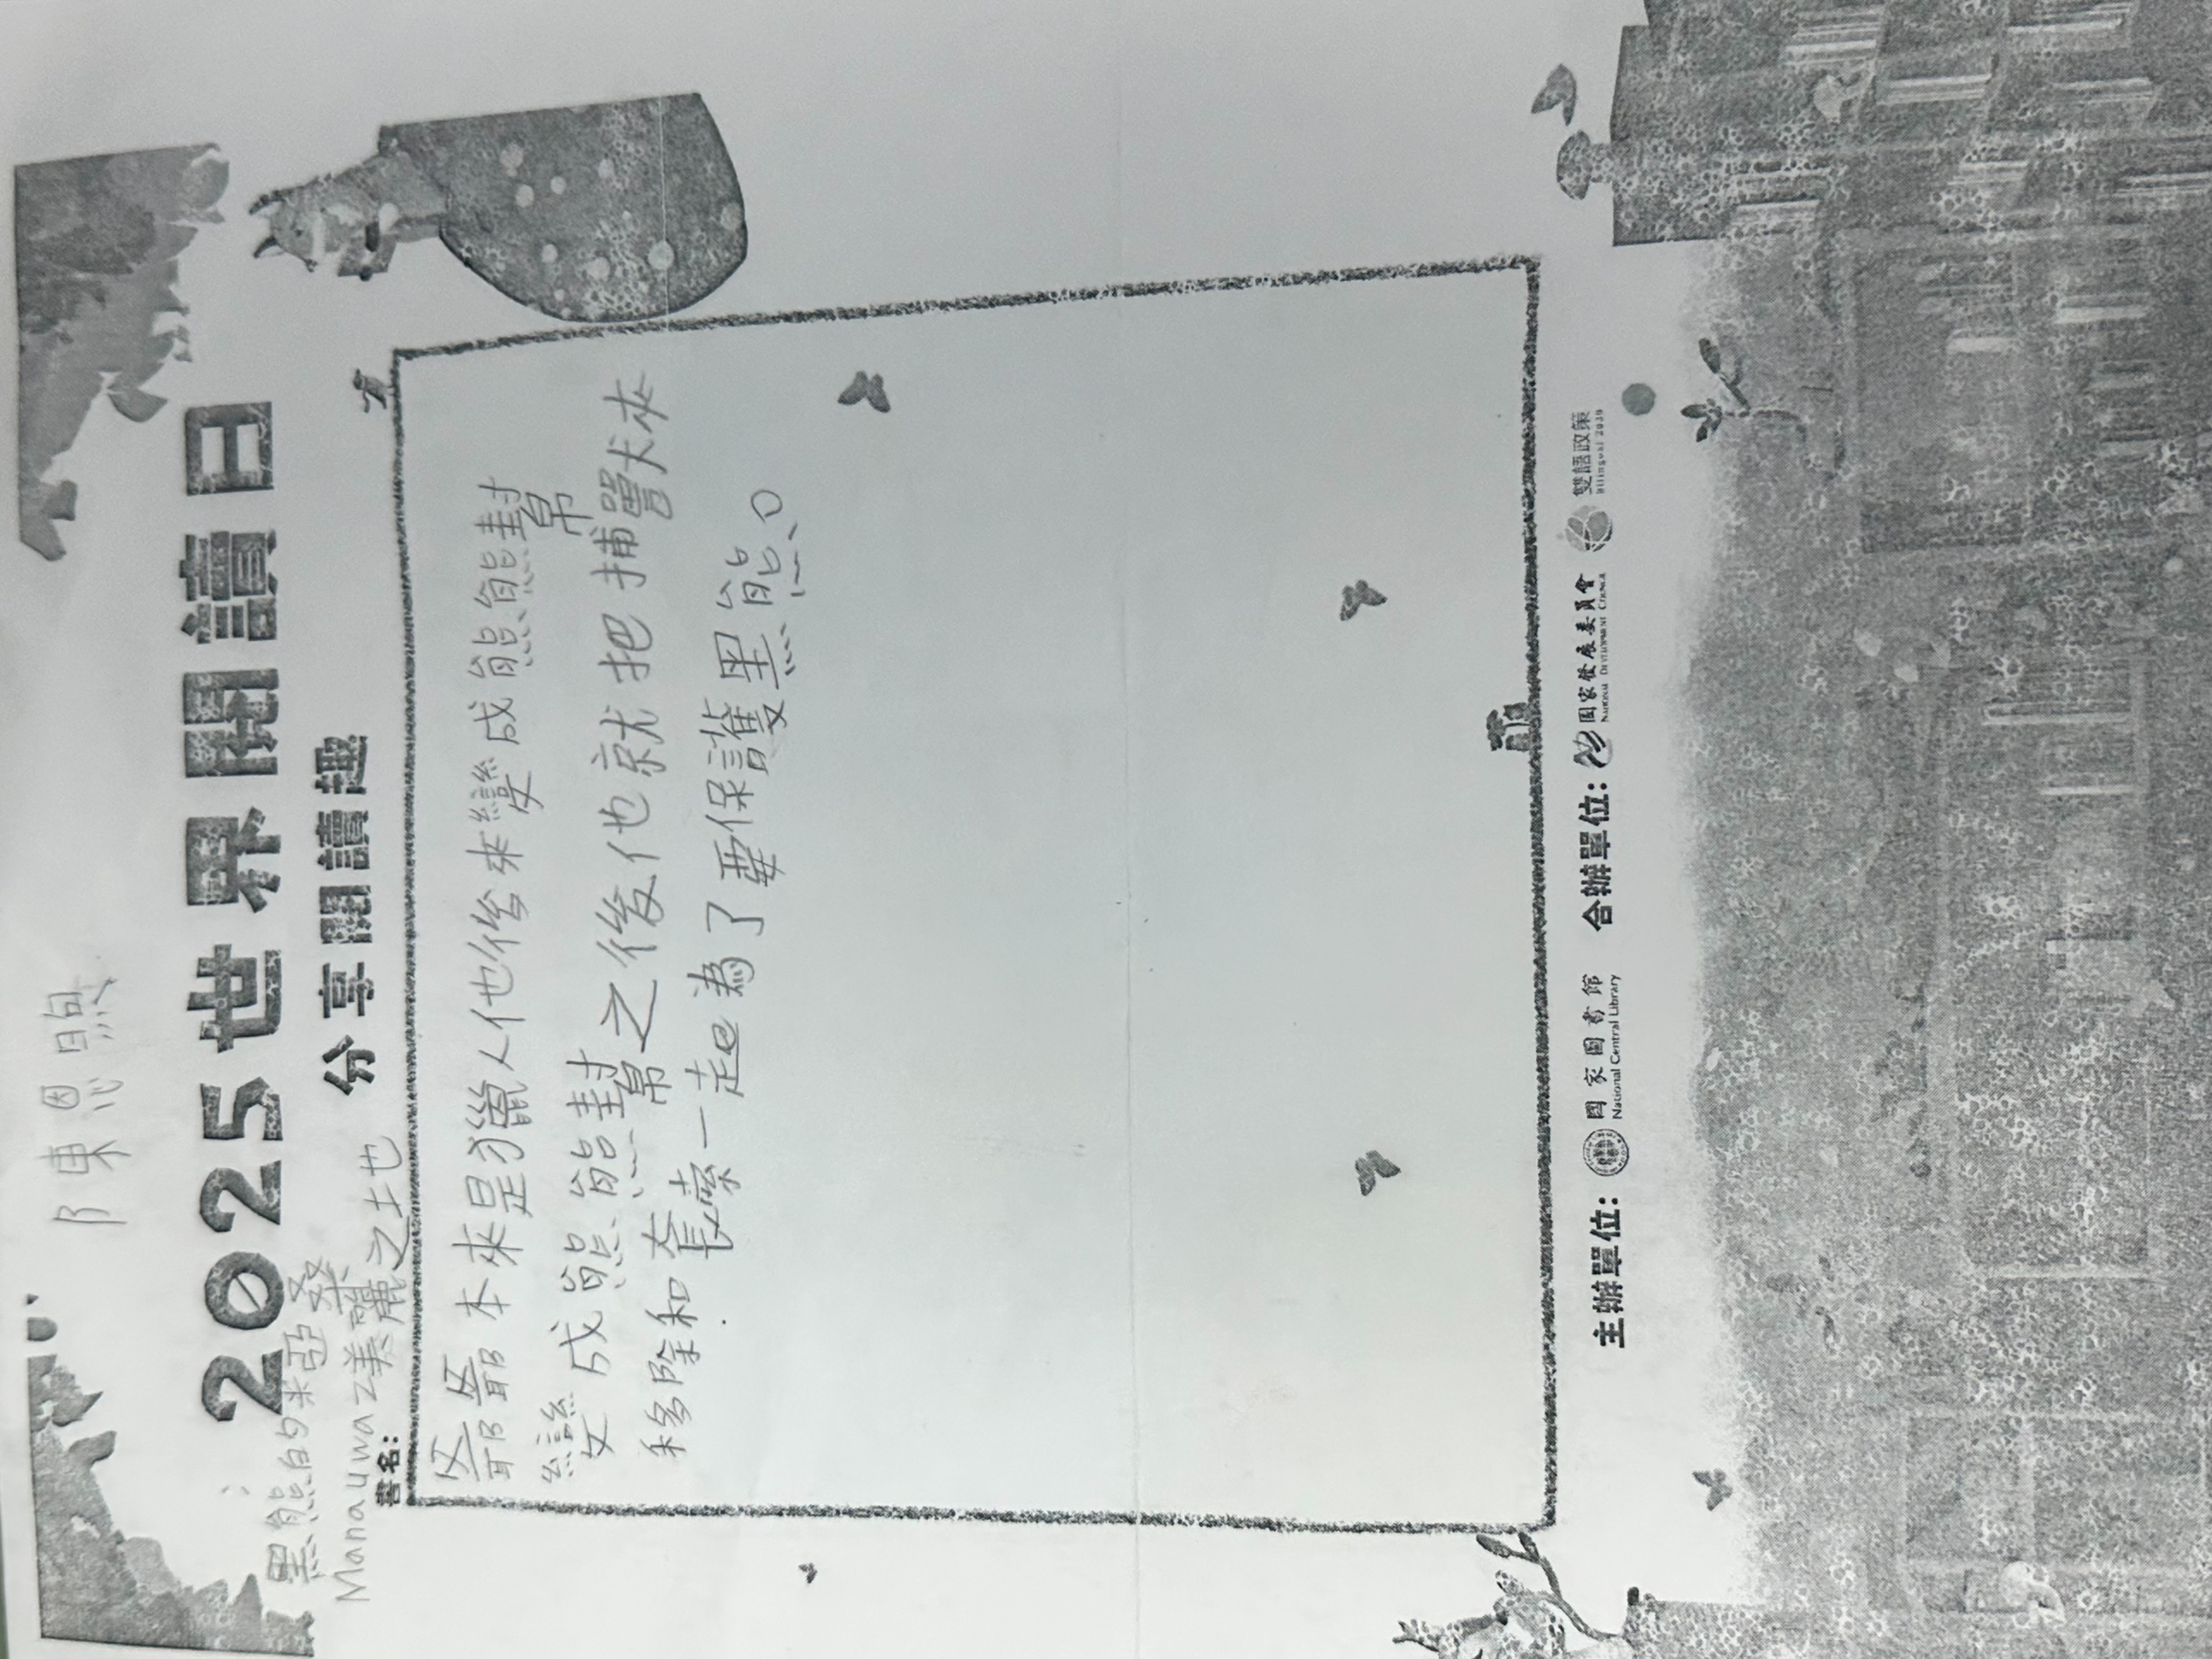 陳恩煦
2025世界閱讀日
分享閱讀趣
黑熊的米亞桑
Manauwa美麗之土也
書名:
爺爺本來是獵人他後來變成熊熊幫
變成熊熊幫之後他就把捕獸夾
移除和套索一起為了要保護黑熊。
主辦單位: 國家圖書館 National Central Library 合辦單位: 國家發展委員會 National Development Council 雙語政策 Bilingual 2030